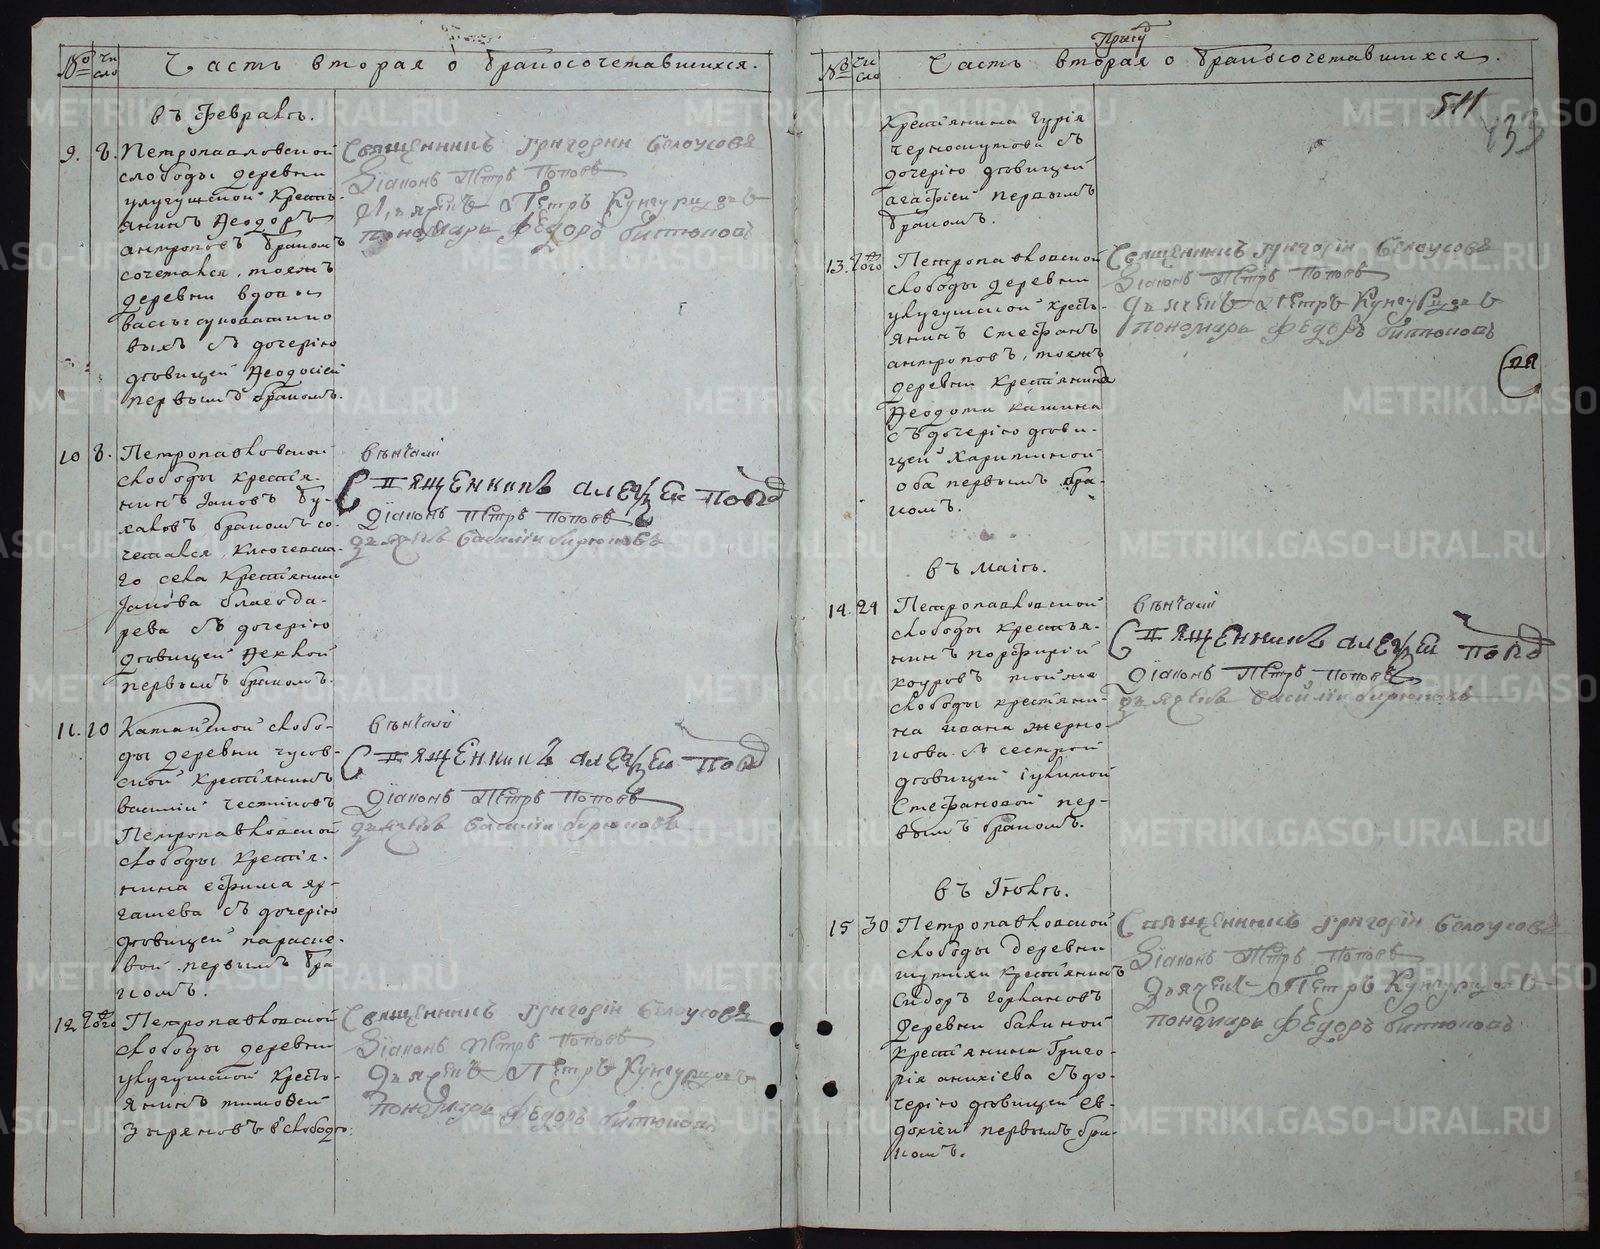 № Число Часть вторая о бракосочетавшихся.
въ Февралѣ.
9. 8. Петропавловской
слободы деревни
улугушской кресть-
янинъ Ѳеодоръ
антроповъ бракомъ
сочетался, тояжъ
деревни вдовы
выхъ съ дочерію
дѣвицей Ѳеодосіей
первымъ бракомъ.
Священникъ Григорий Белоусовъ
Діаконъ Петръ Поповъ
Дьячекъ Петръ Кунгурцовъ
пономарь Федоръ
10 8. Петропавловской
слободы крестья-
нинъ Іаковъ Бу-
лаковъ бракомъ со-
четался, Ключевска-
го села крестьянина
Іакова благода-
рева съ дочерію
дѣвицей Ѳеклой
первымъ бракомъ.
вѣнчали
Священникъ Алеѯѣй Поповъ
Діаконъ Петръ Поповъ
дьячекъ Василіи Бирюковъ
11. 10 Катайской слобо-
ды деревни чусов-
ской крестьянинъ
василій
Петропавловской
слободы крестья-
нина ефима яр-
гашева съ дочерію
дѣвицей параске-
вой первымъ бра
комъ.
вѣнчали
Священникъ Алеѯѣй Поповъ
Діаконъ Петръ Поповъ
дьячекъ Василіи Бирюковъ
12. того Петропавловской
слободы деревни
улугушской кресть-
янинъ тимоѳей
зыряновъ слободы
Священникъ Григоріи Белоусовъ
Діаконъ Петръ Поповъ
Дьячекъ Петръ Кунгурцовъ
Пономарь Федоръ
№ Число Часть вторая о бракосочетавшихся.
511
крестьянина гурія
черноскутова съ
дочерію дѣвицей
агафіей первымъ
бракомъ.
13. того Петропавловской
слободы деревни
улугушской кресть-
янинъ Стефанъ
антроповъ, тояжъ
деревни крестьянина
Ѳеодота кашина
съ дочерію дѣви-
цей харитиной
оба первымъ бра-
комъ.
Священникъ Григоріи Белоусовъ
Діаконъ Петръ Поповъ
Дьячекъ Петръ Кунгурцовъ
пономарь Федоръ
въ Маіѣ.
14. 29 Петропавловской
слободы крестья-
нинъ порфирій
коуровъ тойже
слободы крестьяни-
на ивана жерно-
кова съ сестрой
дѣвицей
Стефановой пер-
вымъ бракомъ.
вѣнчали
Священникъ Алеѯѣй Поповъ
Діаконъ Петръ Поповъ
дьячекъ Василіи Бирюковъ
въ Іюлѣ.
15 30 Петропавловской
слободы деревни
шутихи крестьянинъ
Сидоръ горкановъ
деревни
крестьянина Григо-
рія аникіева съ до-
черію дѣвицей ев-
докіей первымъ бра-
комъ.
Священникъ Григоріи Белоусовъ
Діаконъ Петръ Поповъ
Дьячекъ Петръ Кунгурцовъ
пономарь Федоръ
METRIKI.GASO-URAL.RU